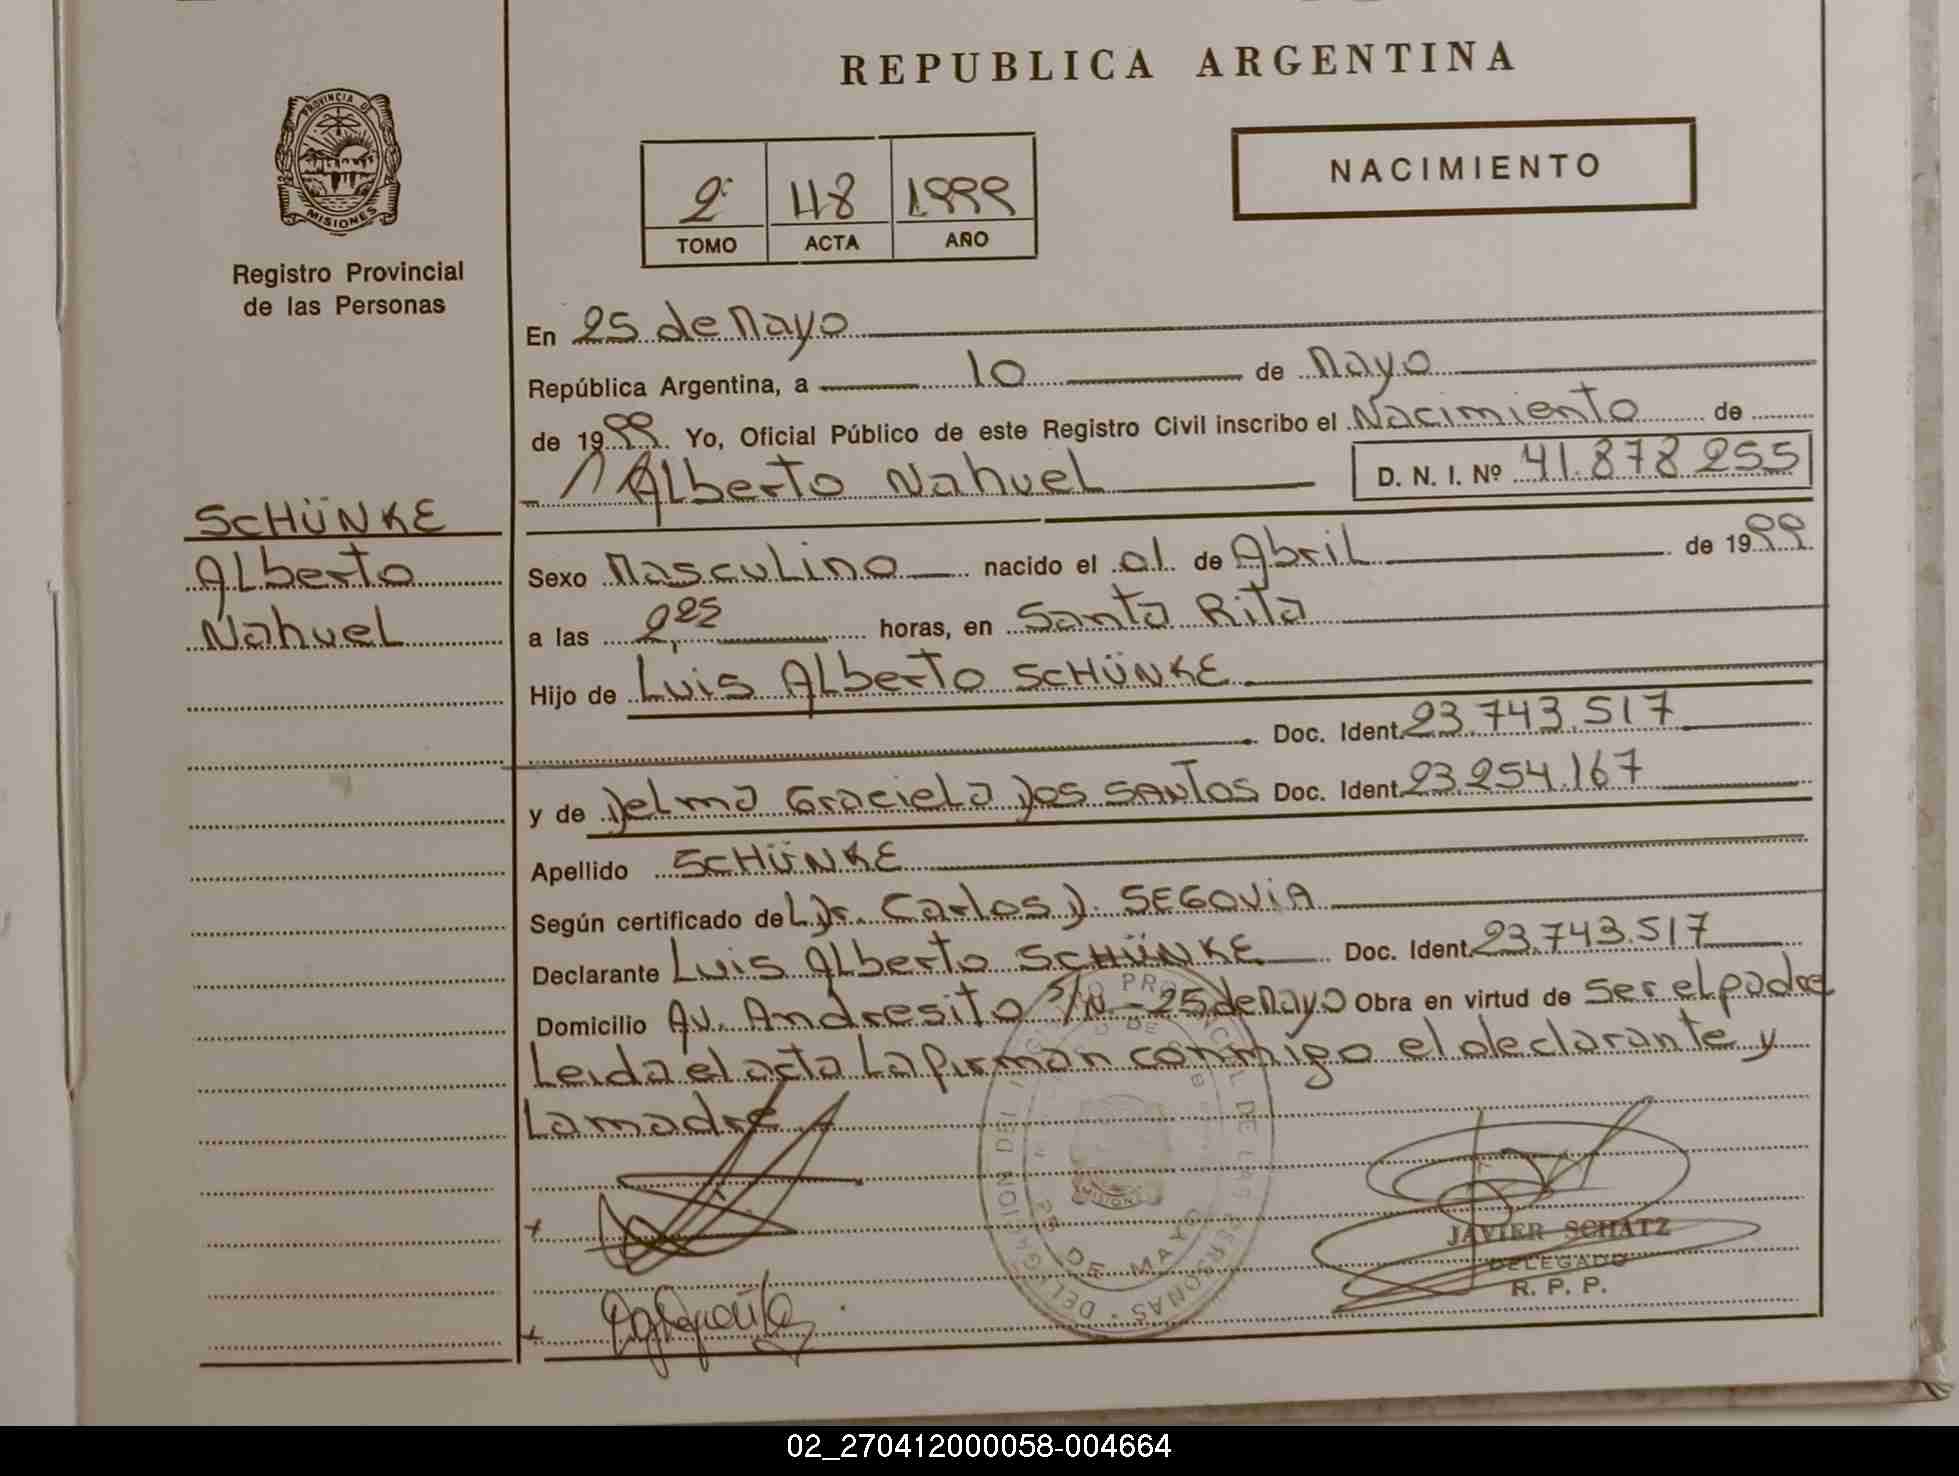 REPUBLICA ARGENTINA
PROVINCIA DE
MISIONES
Registro Provincial
de las Personas
2º 48 1999
TOMO ACTA AÑO
NACIMIENTO
En 25 de Mayo
República Argentina, a 10 de Mayo
de 1999. Yo, Oficial Público de este Registro Civil inscribo el Nacimiento de
Alberto Nahuel D. N. I. Nº 41.878.255
SCHÜNKE
Alberto
Nahuel
Sexo Masculino nacido el 01 de Abril de 1999
a las 2,25 horas, en Santa Rita
Hijo de Luis Alberto SCHÜNKE
Doc. Ident. 23.743.517
y de Delma Graciela Dos SANTOS Doc. Ident. 23.254.167
Apellido SCHÜNKE
Según certificado de L Dr. Carlos D. SEGOVIA
Declarante Luis Alberto SCHÜNKE Doc. Ident. 23.743.517
Domicilio Av. Andresito S/N - 25 de Mayo Obra en virtud de Ser el padre
Leida el acta La firman conmigo el declarante y
La madre
DE LAS PERSONAS
25 DE MAYO
MISIONES
JAVIER SCHATZ
DELEGADO
R. P. P.
02_270412000058-004664